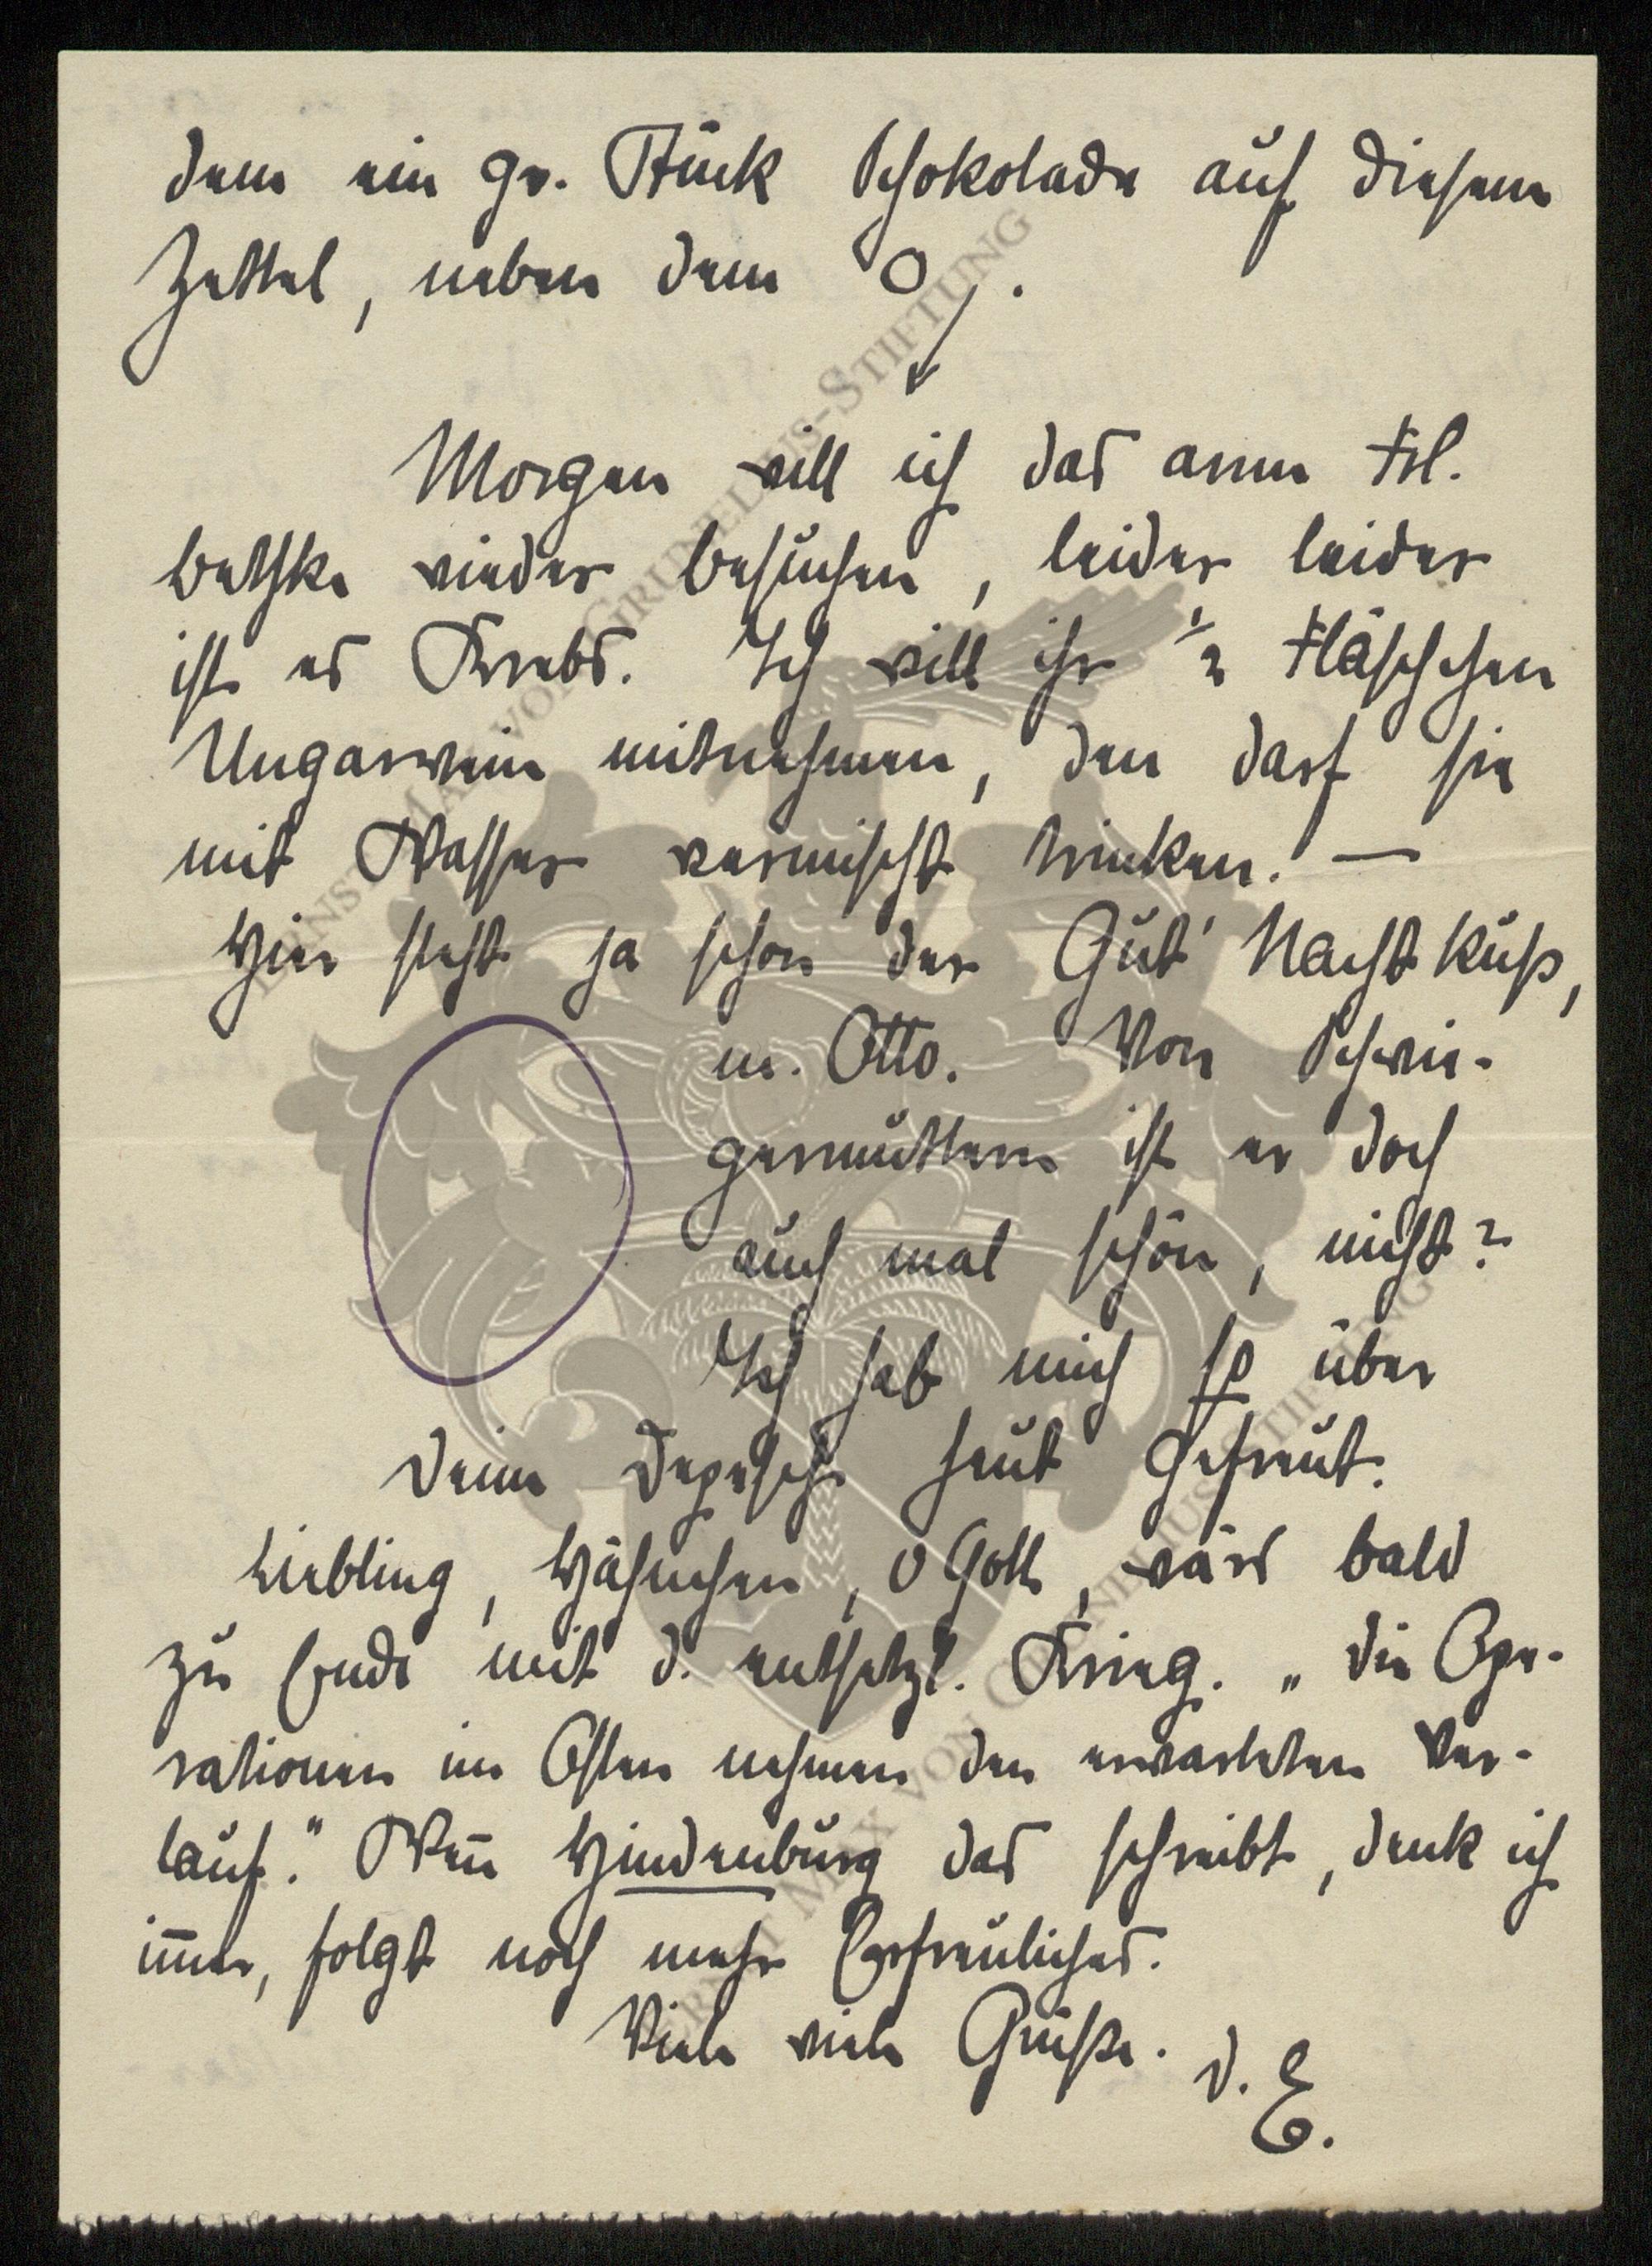 dem ein gr. Stück Schokolade auf diesem
Zettel, neben dem O.
Morgen will ich das arme Frl.
Betske wieder besuchen, leider leider
ist es Krebs. Ich will ihr ½ Fläschchen
Ungarwein mitnehmen, den darf sie
mit Wasser vermischt trinken. —
Hier steht ja schon der Gut' Nacht Kuß,
m. Otto. Von Schwie-
germuttern ist er doch
auch mal schön, nicht?
Ich hab mich so über
Deine Depesche heut gefreut.
Liebling, Hähnchen, o Gott, wärs bald
zu Ende mit d. entsetzl. Krieg. „Die Ope-
rationen im Osten nehmen den erwarteten Ver-
lauf." Weñ Hindenburg das schreibt, denk ich
im̄er, folgt noch mehr Erfreuliches.
Viele viele Grüße. D. E.
ERNST MAX VON GRUNELIUS-STIFTUNG
ERNST MAX VON GRUNELIUS-STIFTUNG